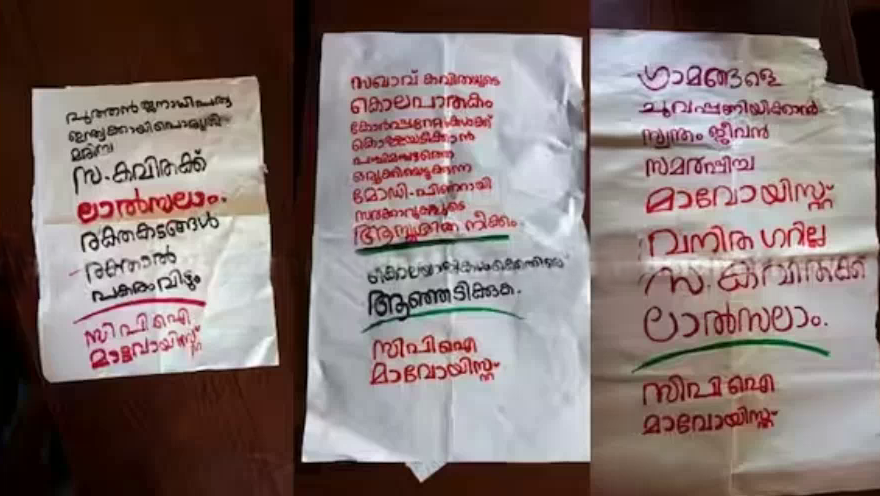 പുത്തൻ ജനാധിപത്യ
ഇന്ത്യക്കായിപൊരുതി
മരിച്ച
സ.കവിതക്ക്
ലാൽസലാം.
രക്തകടങ്ങൾ
രക്തതാൽ
പകരംവീട്ടും
സിപിഐ
മാവോയിസ്റ്റ്
സഖാവ് കവിതയുടെ
കൊലപാതകം
കോർപ്പറേറ്റുകൾക്ക്
കൊള്ളയടിക്കാൻ
പശ്ചിമഘട്ടത്തെ
ഒരുക്കിയെടുക്കുന്ന
മോഡി-പിണറായി
സർക്കാരുകളുടെ
ആസൂത്രിത നീക്കം.
കൊലയാളികൾക്കെതിരെ
ആഞ്ഞടിക്കുക.
സിപിഐ
മാവോയിസ്റ്റ്
ഗ്രാമങ്ങളെ
ചുവപ്പണിയിക്കാൻ
സ്വന്തം ജീവൻ
സമർപ്പിച്ച
മാവോയിസ്റ്റ്
വനിത ഗറില്ല
സ.കവിതക്ക്
ലാൽസലാം.
സിപിഐ
മാവോയിസ്റ്റ്